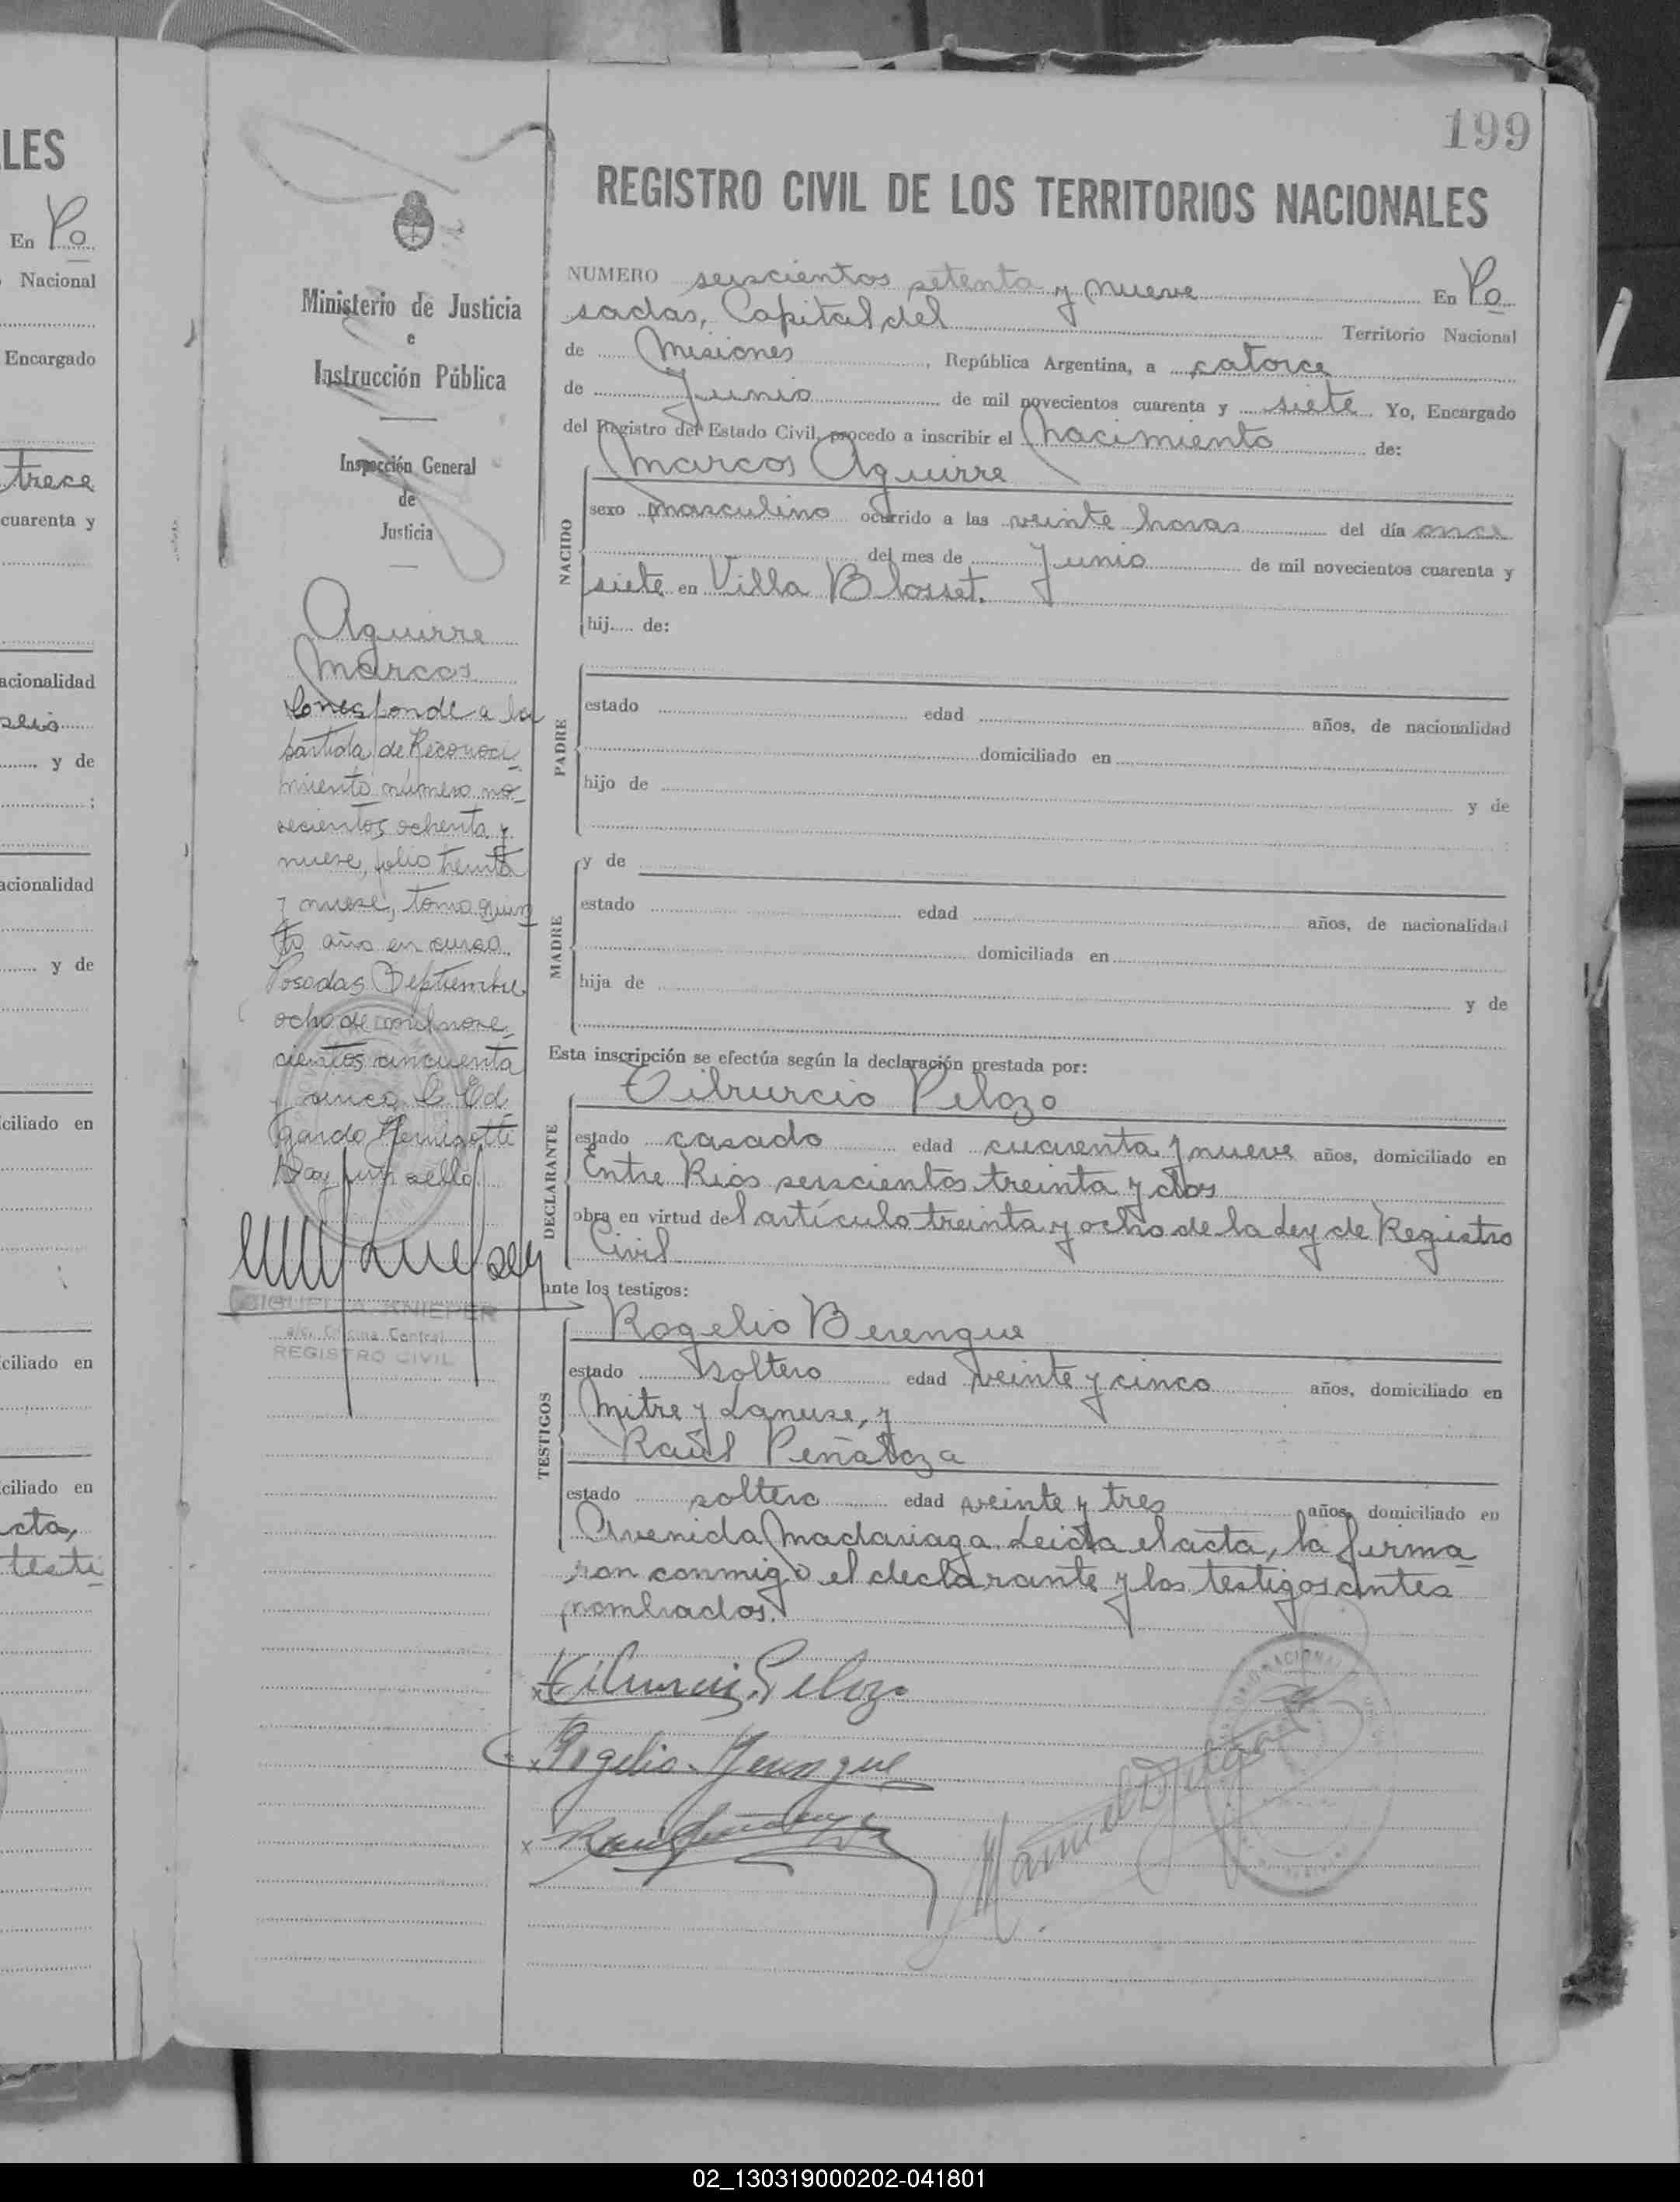 LES
En Po
Nacional
Encargado
trece
cuarenta y
acionalidad
seis
y de
;
acionalidad
y de
ciliado en
ciliado en
ciliado en
cta,
testi
199
Ministerio de Justicia
e
Instrucción Pública
Inspección General
de
Justicia
Aguirre
Marcos
Corresponde a la
partida de Reconoci-
miento número no-
vecientos ochenta y
nueve, folio treinta
y nueve, tomo quin
to año en curso.
Posadas Septiembre
ocho de mil nove-
cientos cincuenta
cinco. E. Ed.
gardo
Hay un sello
a/c. Oficina Central
REGISTRO CIVIL
REGISTRO CIVIL DE LOS TERRITORIOS NACIONALES
NUMERO seiscientos setenta y nueve En Po
sadas, Capital del Territorio Nacional
de Misiones, República Argentina, a catorce
de Junio de mil novecientos cuarenta y siete. Yo, Encargado
del Registro del Estado Civil, procedo a inscribir el nacimiento de:
Marcos Aguirre
NACIDO
sexo masculino ocurrido a las veinte horas del día once
del mes de Junio de mil novecientos cuarenta y
siete en Villa Blosset.
hij.... de:
PADRE
estado edad años, de nacionalidad
domiciliado en
hijo de y de
;
MADRE
y de
estado edad años, de nacionalidad
domiciliada en
hija de y de
Esta inscripción se efectúa según la declaración prestada por:
Tiburcio Pelozo
DECLARANTE
estado casado edad cuarenta y nueve años, domiciliado en
Entre Rios seiscientos treinta y dos
obra en virtud del artículo treinta y ocho de la Ley de Registro
Civil
ante los testigos:
Rogelio Berengue
TESTIGOS
estado soltero edad veinte y cinco años, domiciliado en
Mitre y Lanuse, y
Raúl Peñaloza
estado soltero edad veinte y tres años, domiciliado en
Avenida Madariaga. Leida el acta, la firma-
ron conmigo el declarante y los testigos antes
nombrados.
Tiburcio Pelozo
Rogelio Berengue
02_130319000202-041801